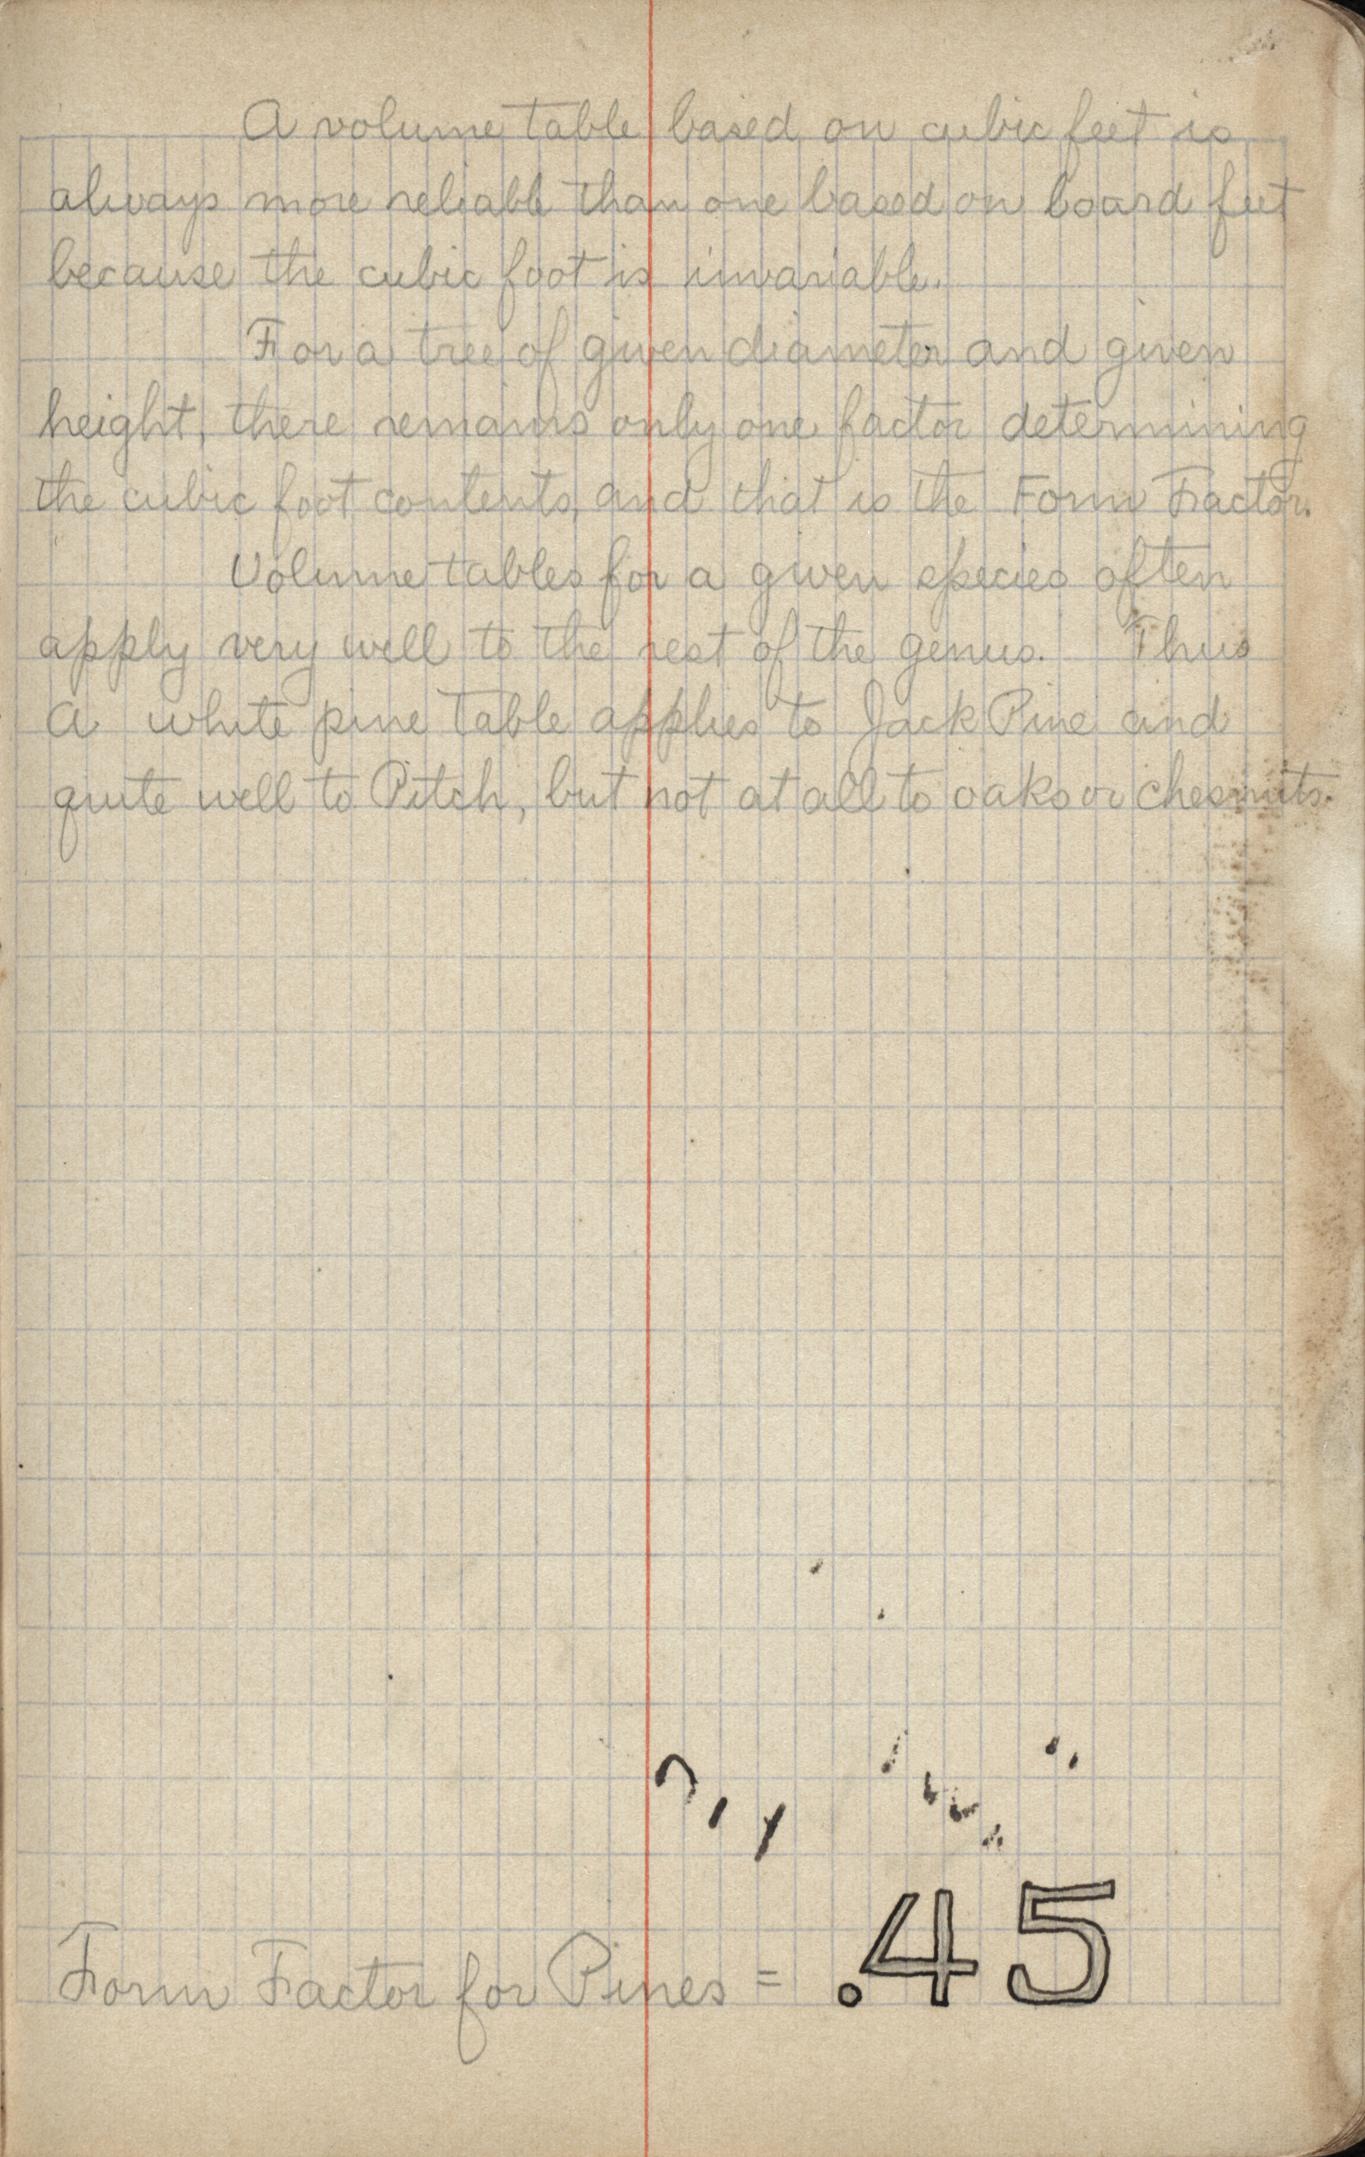 A volume table based on cubic feet is
always more reliable than one based on board feet
because the cubic foot is invariable.
For a tree of given diameter and given
height, there remains only one factor determining
the cubic foot contents, and that is the Form Factor.
Volume tables for a given species often
apply very well to the rest of the genus. Thus
a white pine table applies to Jack Pine and
quite well to Pitch, but not at all to oaks or chesnuts.
Form Factor for Pines = .45